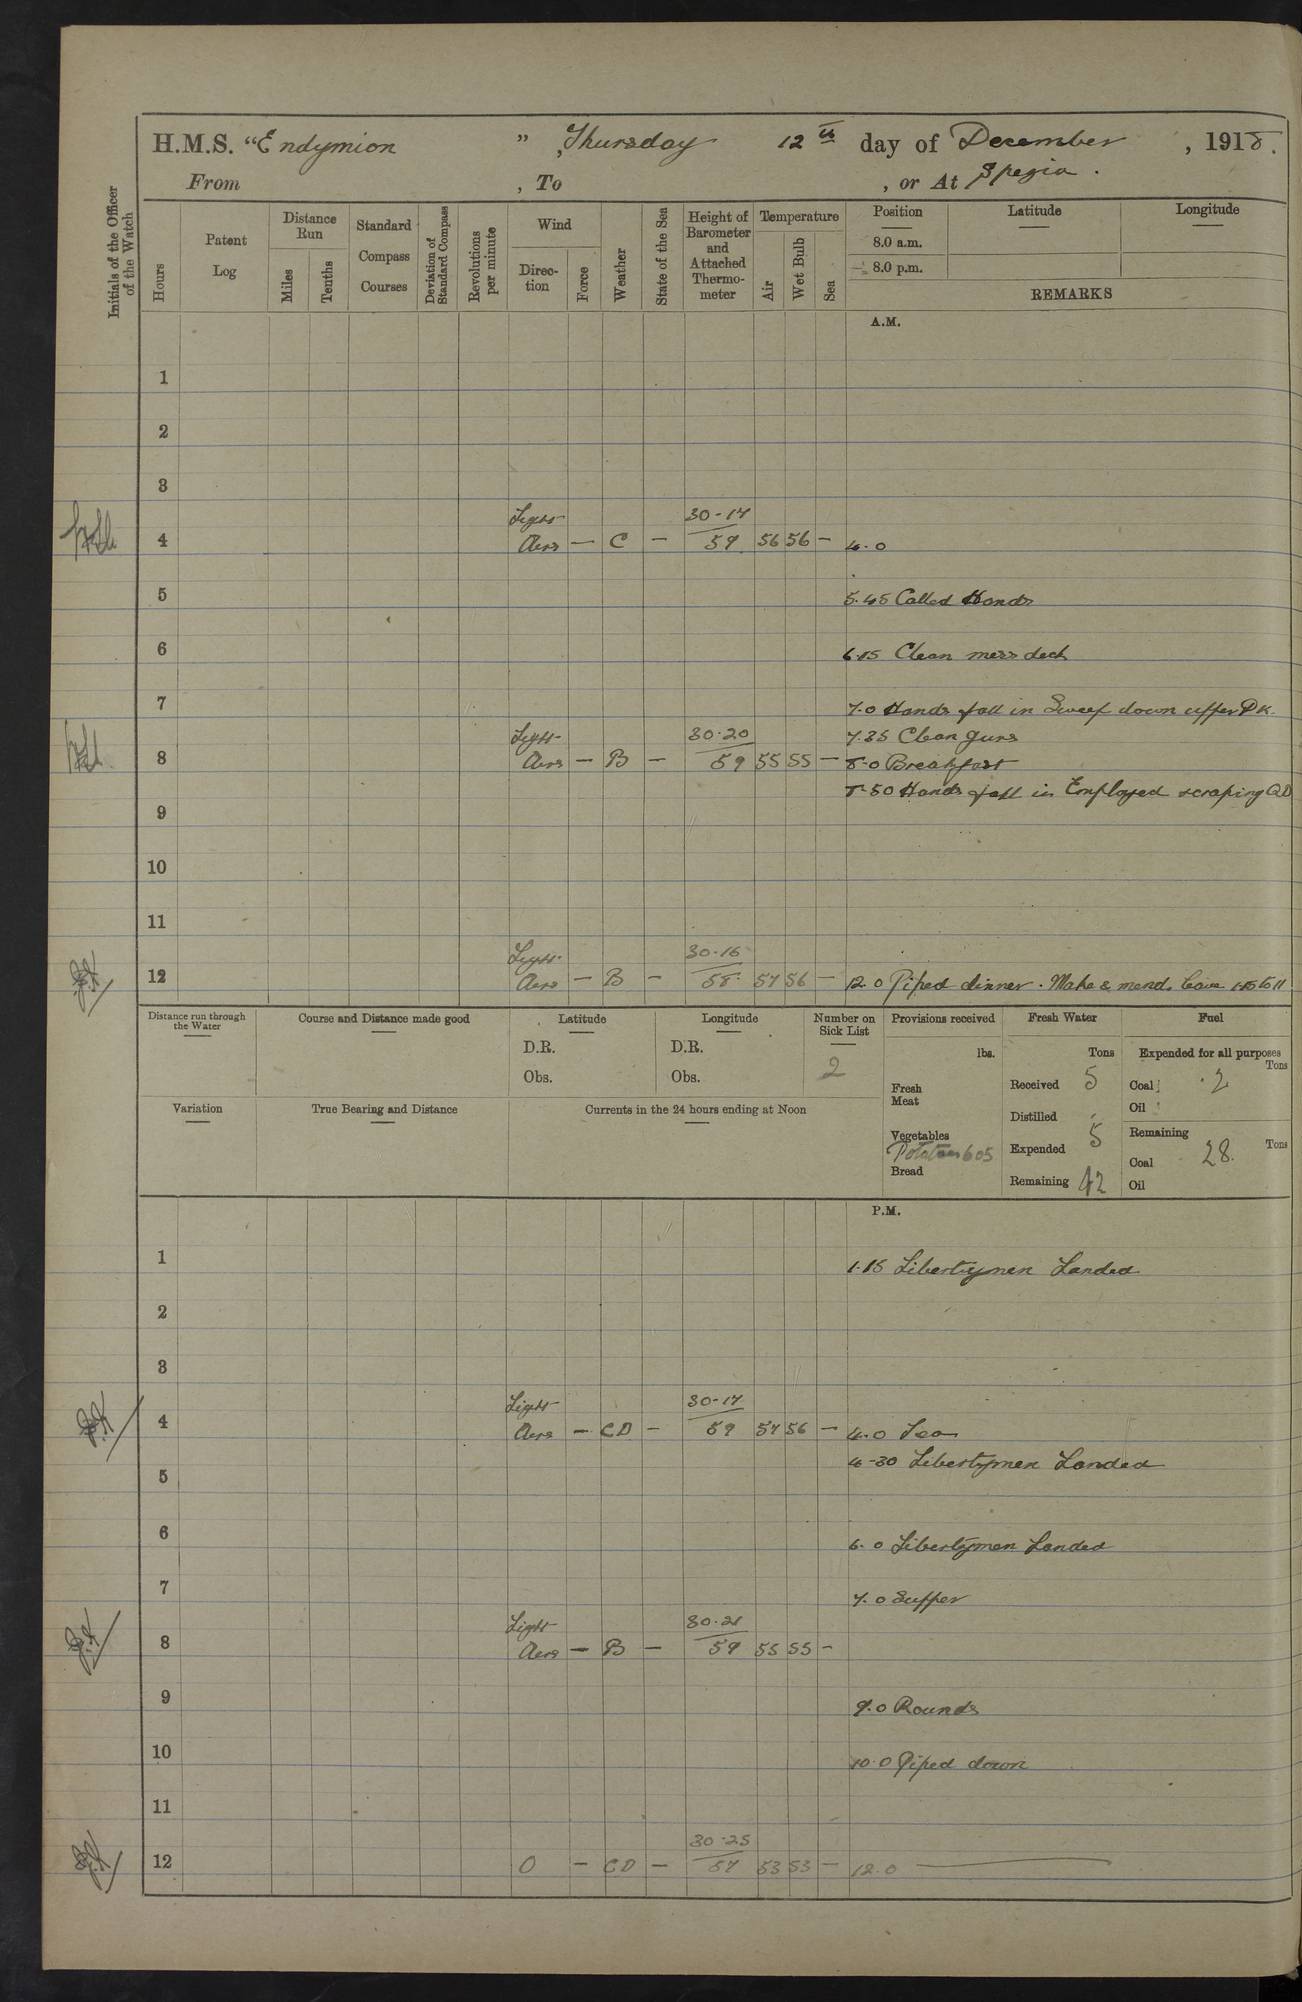 H.M.S. "Endymion", Thursday 12th day of December, 1918.
From , To , or At Spezia.
Initials of the Officer of the Watch
Hours
Patent Log
Distance Run
Miles
Tenths
Standard Compass Courses
Deviation of Standard Compass
Revolutions per minute
Wind
Direc-tion
Force
Weather
State of the Sea
Height of Barometer and Attached Thermo-meter
Temperature
Air
Wet Bulb
Sea
Position
8.0 a.m.
8.0 p.m.
Latitude
Longitude
REMARKS
A.M.
1
2
3
Light 30-17
4 Airs — C — 59 56 56 — 4.0
5 5.45 Called Hands
6 6.15 Clean mess deck
7 7.0 Hands fall in Sweep down upper DK.
Light 30.20 7.35 Clean guns
8 Airs — B — 59 55 55 — 8.0 Breakfast
8.50 Hands fall in Employed scraping QD
9
10
11
Light 30.16
12 Airs — B — 58 57 56 — 12.0 Piped dinner. Make & mend. Leave 1.15 to 11
Distance run through the Water
Course and Distance made good
Latitude
D.R.
Obs.
Longitude
D.R.
Obs.
Number on Sick List
2
Provisions received
lbs.
Fresh Meat
Vegetables
Potatoes 605
Bread
Fresh Water
Tons
Received 5
Distilled
Expended 5
Remaining 42
Fuel
Expended for all purposes
Tons
Coal 2
Oil
Remaining
Tons
Coal 28.
Oil
Variation
True Bearing and Distance
Currents in the 24 hours ending at Noon
P.M.
1 1.15 Libertymen Landed
2
3
Light 30-17
4 Airs — CD — 59 57 56 — 4.0 Tea
4-30 Libertymen Landed
5
6 6.0 Libertymen Landed
7 7.0 Supper
Light 30.21
8 Airs — B — 59 55 55 —
9 9.0 Rounds
10 10.0 Piped down
11
30.25
12 O — CD — 57 53 53 — 12.0 —